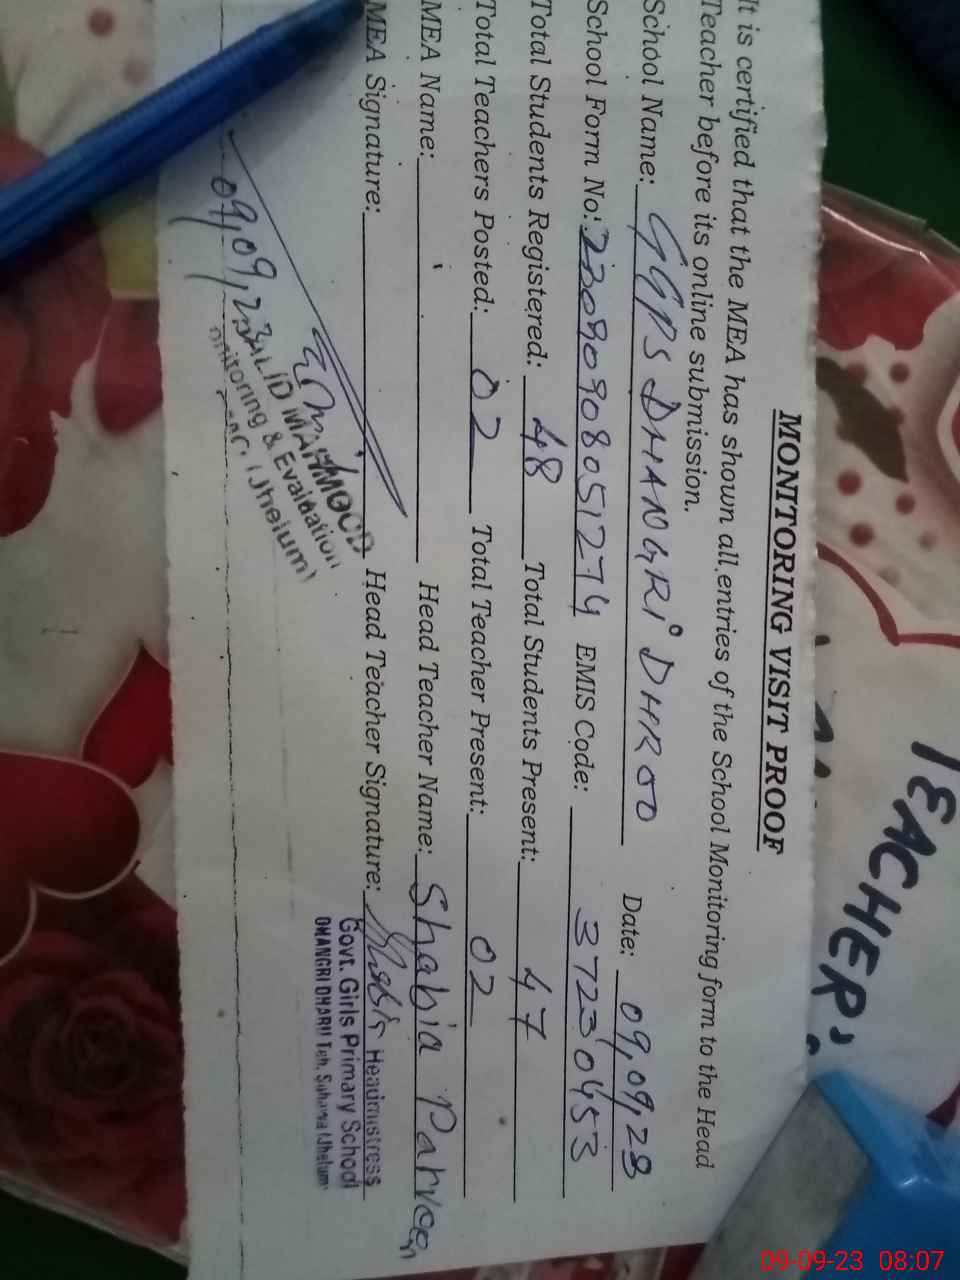 MONITORING VISIT PROOF
It is certified that the MEA has shown all entries of the School Monitoring form to the Head
Teacher before its online submission.
School Name: GGPS DHANGRI DHROO Date: 09,09,23
School Form No: 23090908051274 EMIS Code: 37230453
Total Students Registered: 48 Total Students Present: 47
Total Teachers Posted: 02 Total Teacher Present: 02
MEA Name: Head Teacher Name: Shabia Parveen
MEA Signature: Head Teacher Signature:
Headmistress
Govt. Girls Primary School
DHANGRI DHARU Teh. Sohawa (Jhelum)
MAHMOOD
Monitoring & Evaluation
(Jhelum)
09,09,23
TEACHER'S
09-09-23 08:07